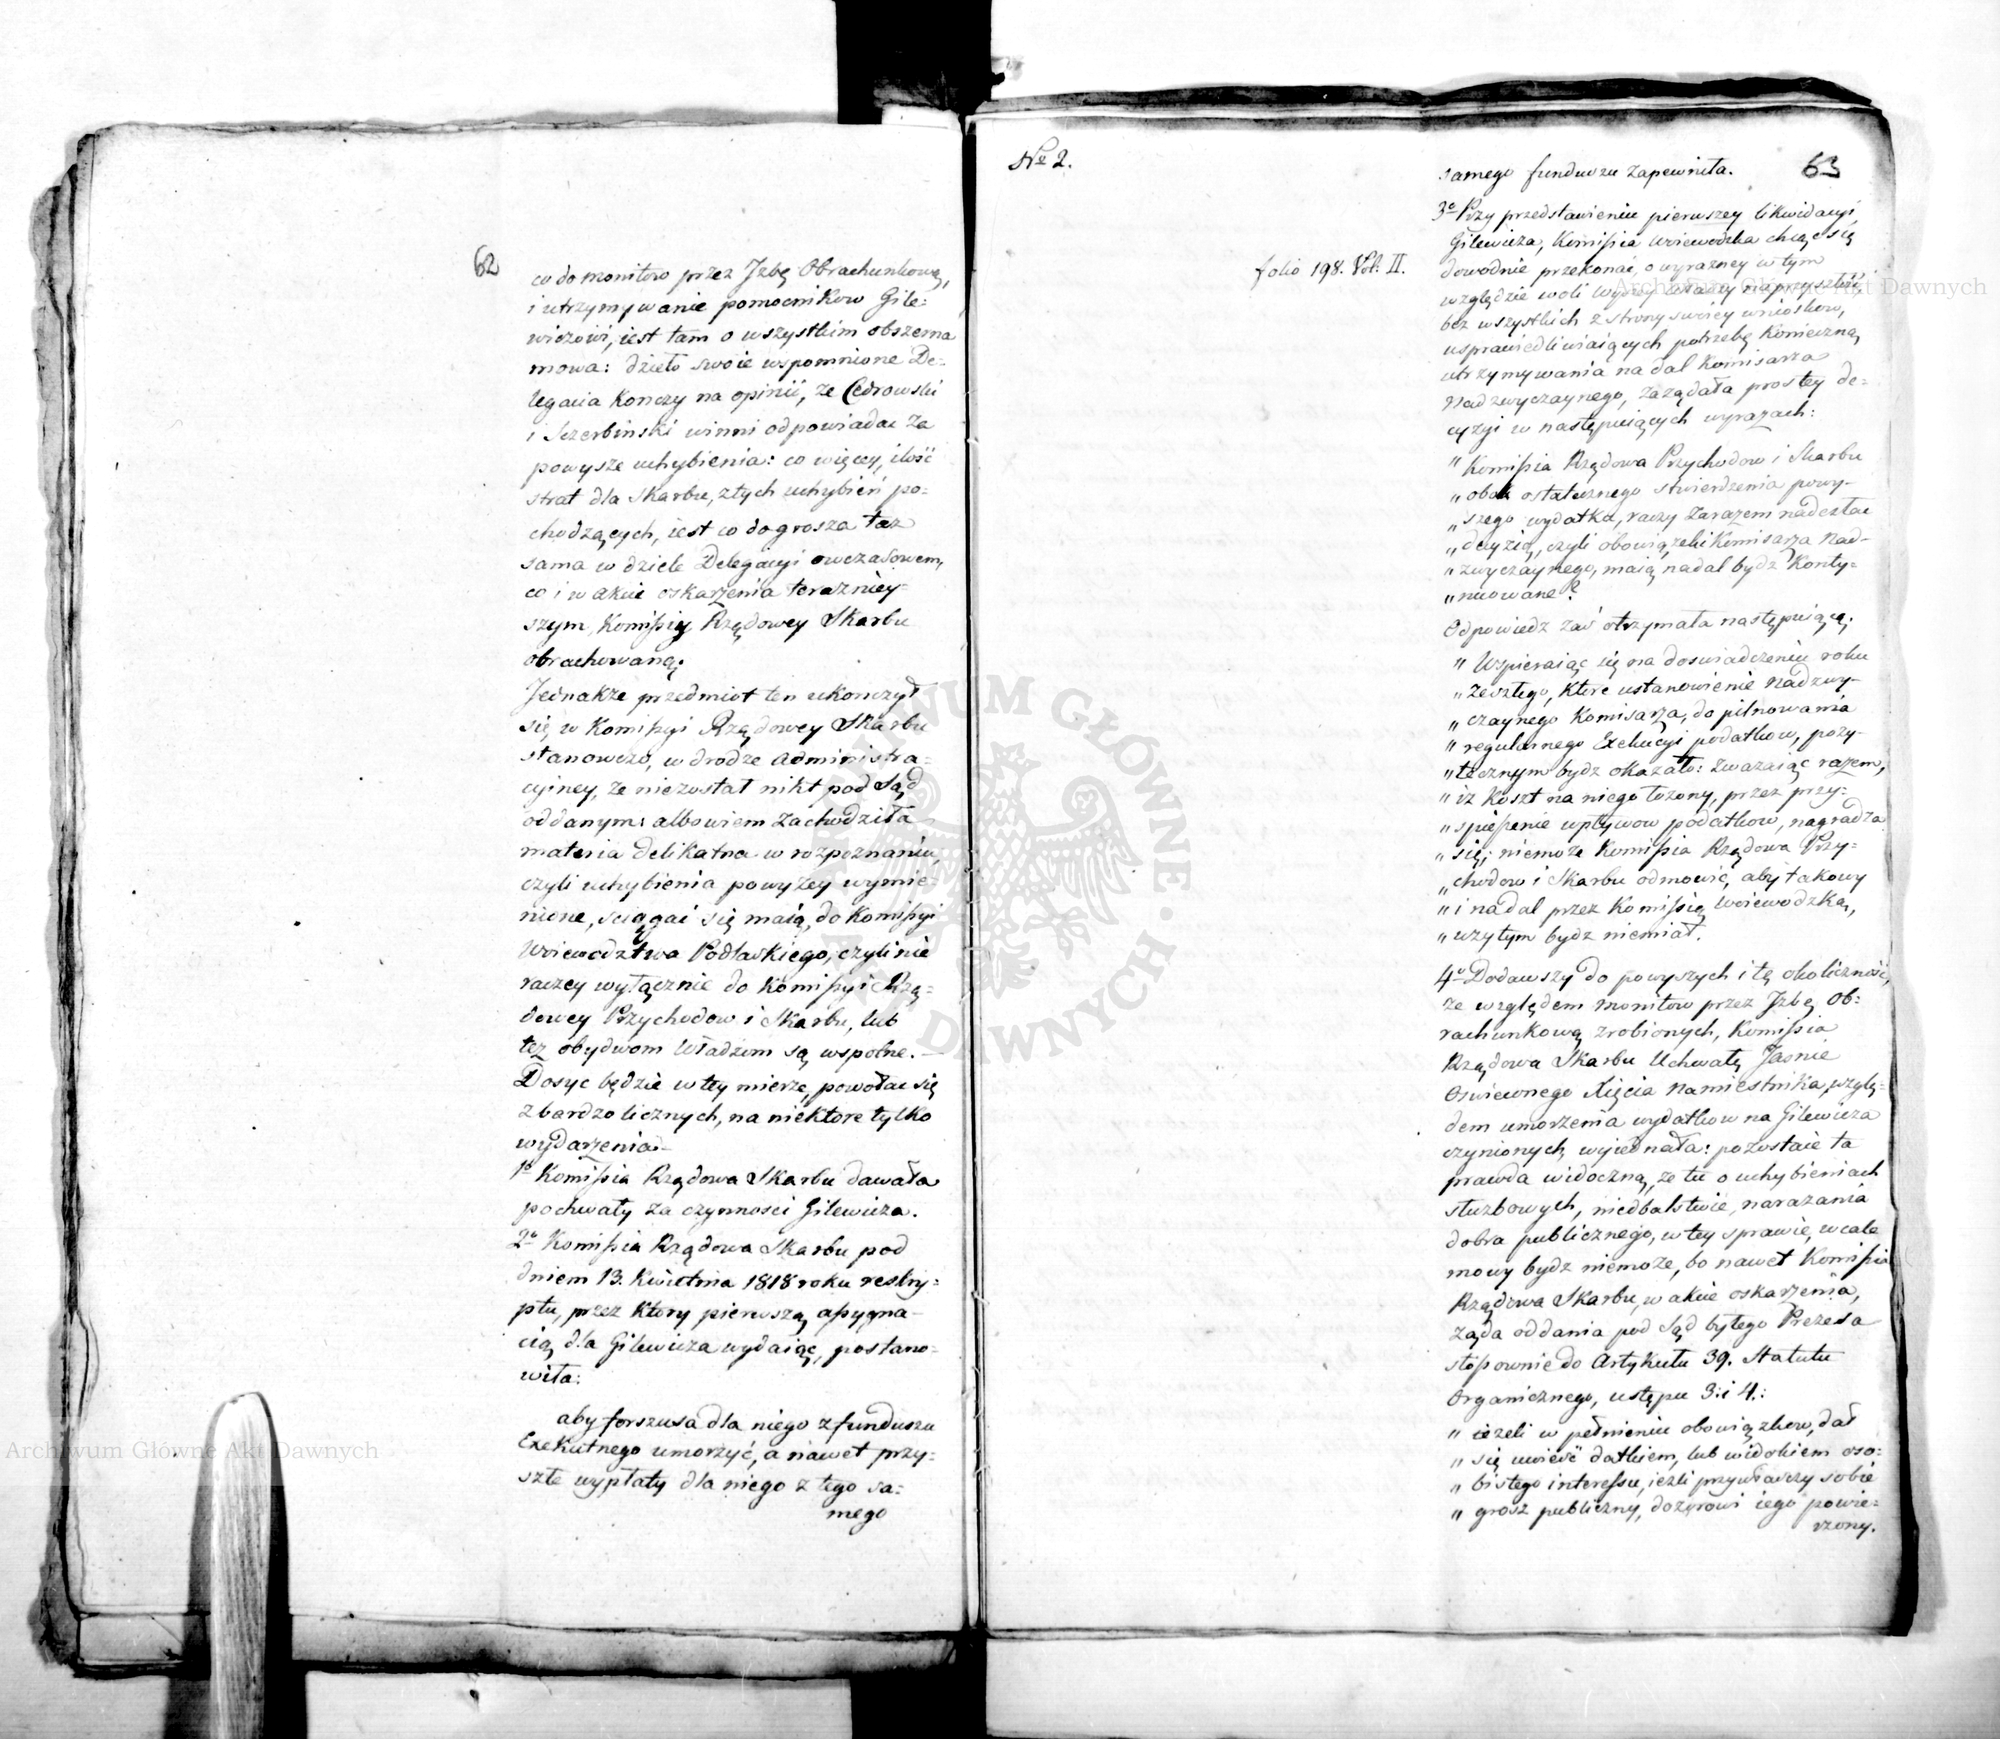 62
co do monitow przez Izbę Obrachunkową,
i utrzymywanie pomocnikow Gile-
wiczowi, iest tam o wszystkim obszerna
mowa: dzieło swoie wspomnione De-
legacia konczy na opinii, że Cedrowski
i Szczerbinski winni odpowiadac za
powysze uchybienia: co więcey, ilość
strat dla Skarbu, z tych uchybień po-
chodzących, iest co do grosza taż
sama w dziele Delegacyi owczasowem,
co i w akcie oskarżenia teraźniey-
szym, Komissyę Rządowey Skarbu
obrachowaną.
Jednakże przedmiot ten ukonczył
się w Komissyi Rządowey Skarbu
stanowczo, w drodze administra-
cyiney, że niezostał nikt pod Sąd
oddanym: albowiem zachodziła
materia delikatna w rozpoznaniu,
czyli uchybienia powyżey wymie-
nione, sciągać się maią, do Komissyi
Woiewodztwa Podlaskiego, czyli nie
raczey wyłącznie do Komissyi Rzą-
dowey Przychodow i Skarbu, lub
też obydwom Władzom są wspolne. —
Dosyc będzie w tey mierze, powołac się
z bardzo licznych, na niektore tylko
wydarzenia. —
1o Komissia Rządowa Skarbu dawała
pochwały za czynnosci Gilewicza.
2o Komissia Rządowa Skarbu pod
dniem 13. Kwietnia 1818 roku reskry-
ptu, przez ktory pierwszą assygna-
cią dla Gilewicza wydaiąc, postano-
wiła:
aby forszusa dla niego z funduszu
Exekutnego umorzyć, a nawet przy-
szłe wypłaty dla niego z tego sa-
mego
No 2.
63
samego funduszu zapewniła.
3o Przy przedstawieniu pierwszey likwidacyi
Gilewicza, Komissia Woiewodzka chcąc się
folio 198. Vol: II.
dowodnie przekonać, o wyrazney w tym
względzie woli wyższey Władzy na przyszłość,
bez wszystkich z strony swoiey wnioskow,
usprawiedliwiaiących potrzebę konieczną
utrzymywania nadal Komisarza
Nadzwyczaynego, zażądała prostey de-
cyzyi w następuiących wyrazach:
" Komissia Rządowa Przychodow i Skarbu
" obok ostatecznego stwierdzenia powy-
" szego wydatku, raczy zarazem nadesłac
" decyzią, czyli obowiązki Komisarza Nad-
" zwyczaynego, maią nadal bydz konty-
" nuowane?
Odpowiedz zaś otrzymała następuiącą:
" Wspieraiąc się na doswiadczeniu roku
" zeszłego, ktore ustanowienie Nadzwy-
" czaynego Komisarza, do pilnowania
" regularnego Exekucyi podatkow, poży-
" tecznym bydz okazało: zważaiąc razem,
" iż koszt na niego łożony, przez przy-
" spieszenie wpływow podatkow, nagradza
" się; niemoże Komissia Rządowa Przy-
" chodow i Skarbu odmowić, aby takowy
" i nadal przez Komissią Woiewodzką,
" użytym bydz niemiał.
4o Dodawszy do powyszych i tę okoliczność,
że względem monitow przez Izbę Ob-
rachunkową zrobionych, Komissia
Rządowa Skarbu Uchwałę Jaśnie
Oświeconego Xięcia Namiestnika, wzglę-
dem umorzenia wydatkow na Gilewicza
czynionych, wyiednała: pozostaie ta
prawda widoczną, że tu o uchybieniach
służbowych, niedbalstwie, narażania
dobra publicznego, w tey sprawie, wcale
mowy bydz niemoże, bo nawet Komissia
Rządowa Skarbu, w akcie oskarżenia,
żąda oddania pod Sąd byłego Prezesa
stosownie do Artykułu 39. Statutu
Organicznego, ustępu 3: i 4.:
" ieżeli w pełnieniu obowiązkow, dał
" się uwieść datkiem, lub widokiem oso-
" bistego interessu, ieżli przywłaszczy sobie
" grosz publiczny, dozorowi iego powie-
rzony.
Archiwum Główne Akt Dawnych
Archiwum Główne Akt Dawnych
ARCHIWUM GŁÓWNE AKT DAWNYCH